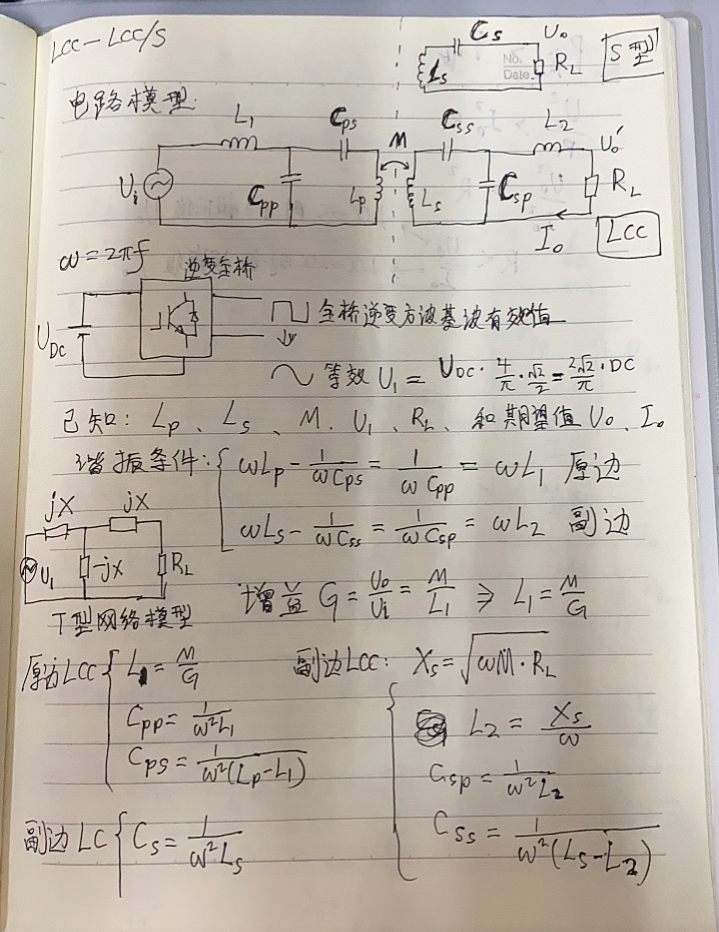 LCC-LCC/S
Cs Uo
Ls No. Date. RL S型
电路模型:
L1 Cps M Css L2 Uo'
Ui Cpp Lp Ls Csp RL
Io LCC
ω=2πf 逆变全桥
UDC 全桥逆变方波基波有效值
等效 U1 = UDC·4/π·√2/2=2√2/π·DC
已知: Lp、Ls、M、U1、RL、和期望值Uo、Io
谐振条件: ωLp-1/ωCps=1/ωCpp=ωL1 原边
jX jX ωLs-1/ωCss=1/ωCsp=ωL2 副边
U1 -jX RL
T型网络模型 增益G=Uo/Ui=M/L1 ⇒ L1=M/G
原边LCC L1=M/G 副边LCC: Xs=√ωM·RL
Cpp=1/ω²L1 L2=Xs/ω
Cps=1/ω²(Lp-L1) Csp=1/ω²L2
副边LC Cs=1/ω²Ls Css=1/ω²(Ls-L2)